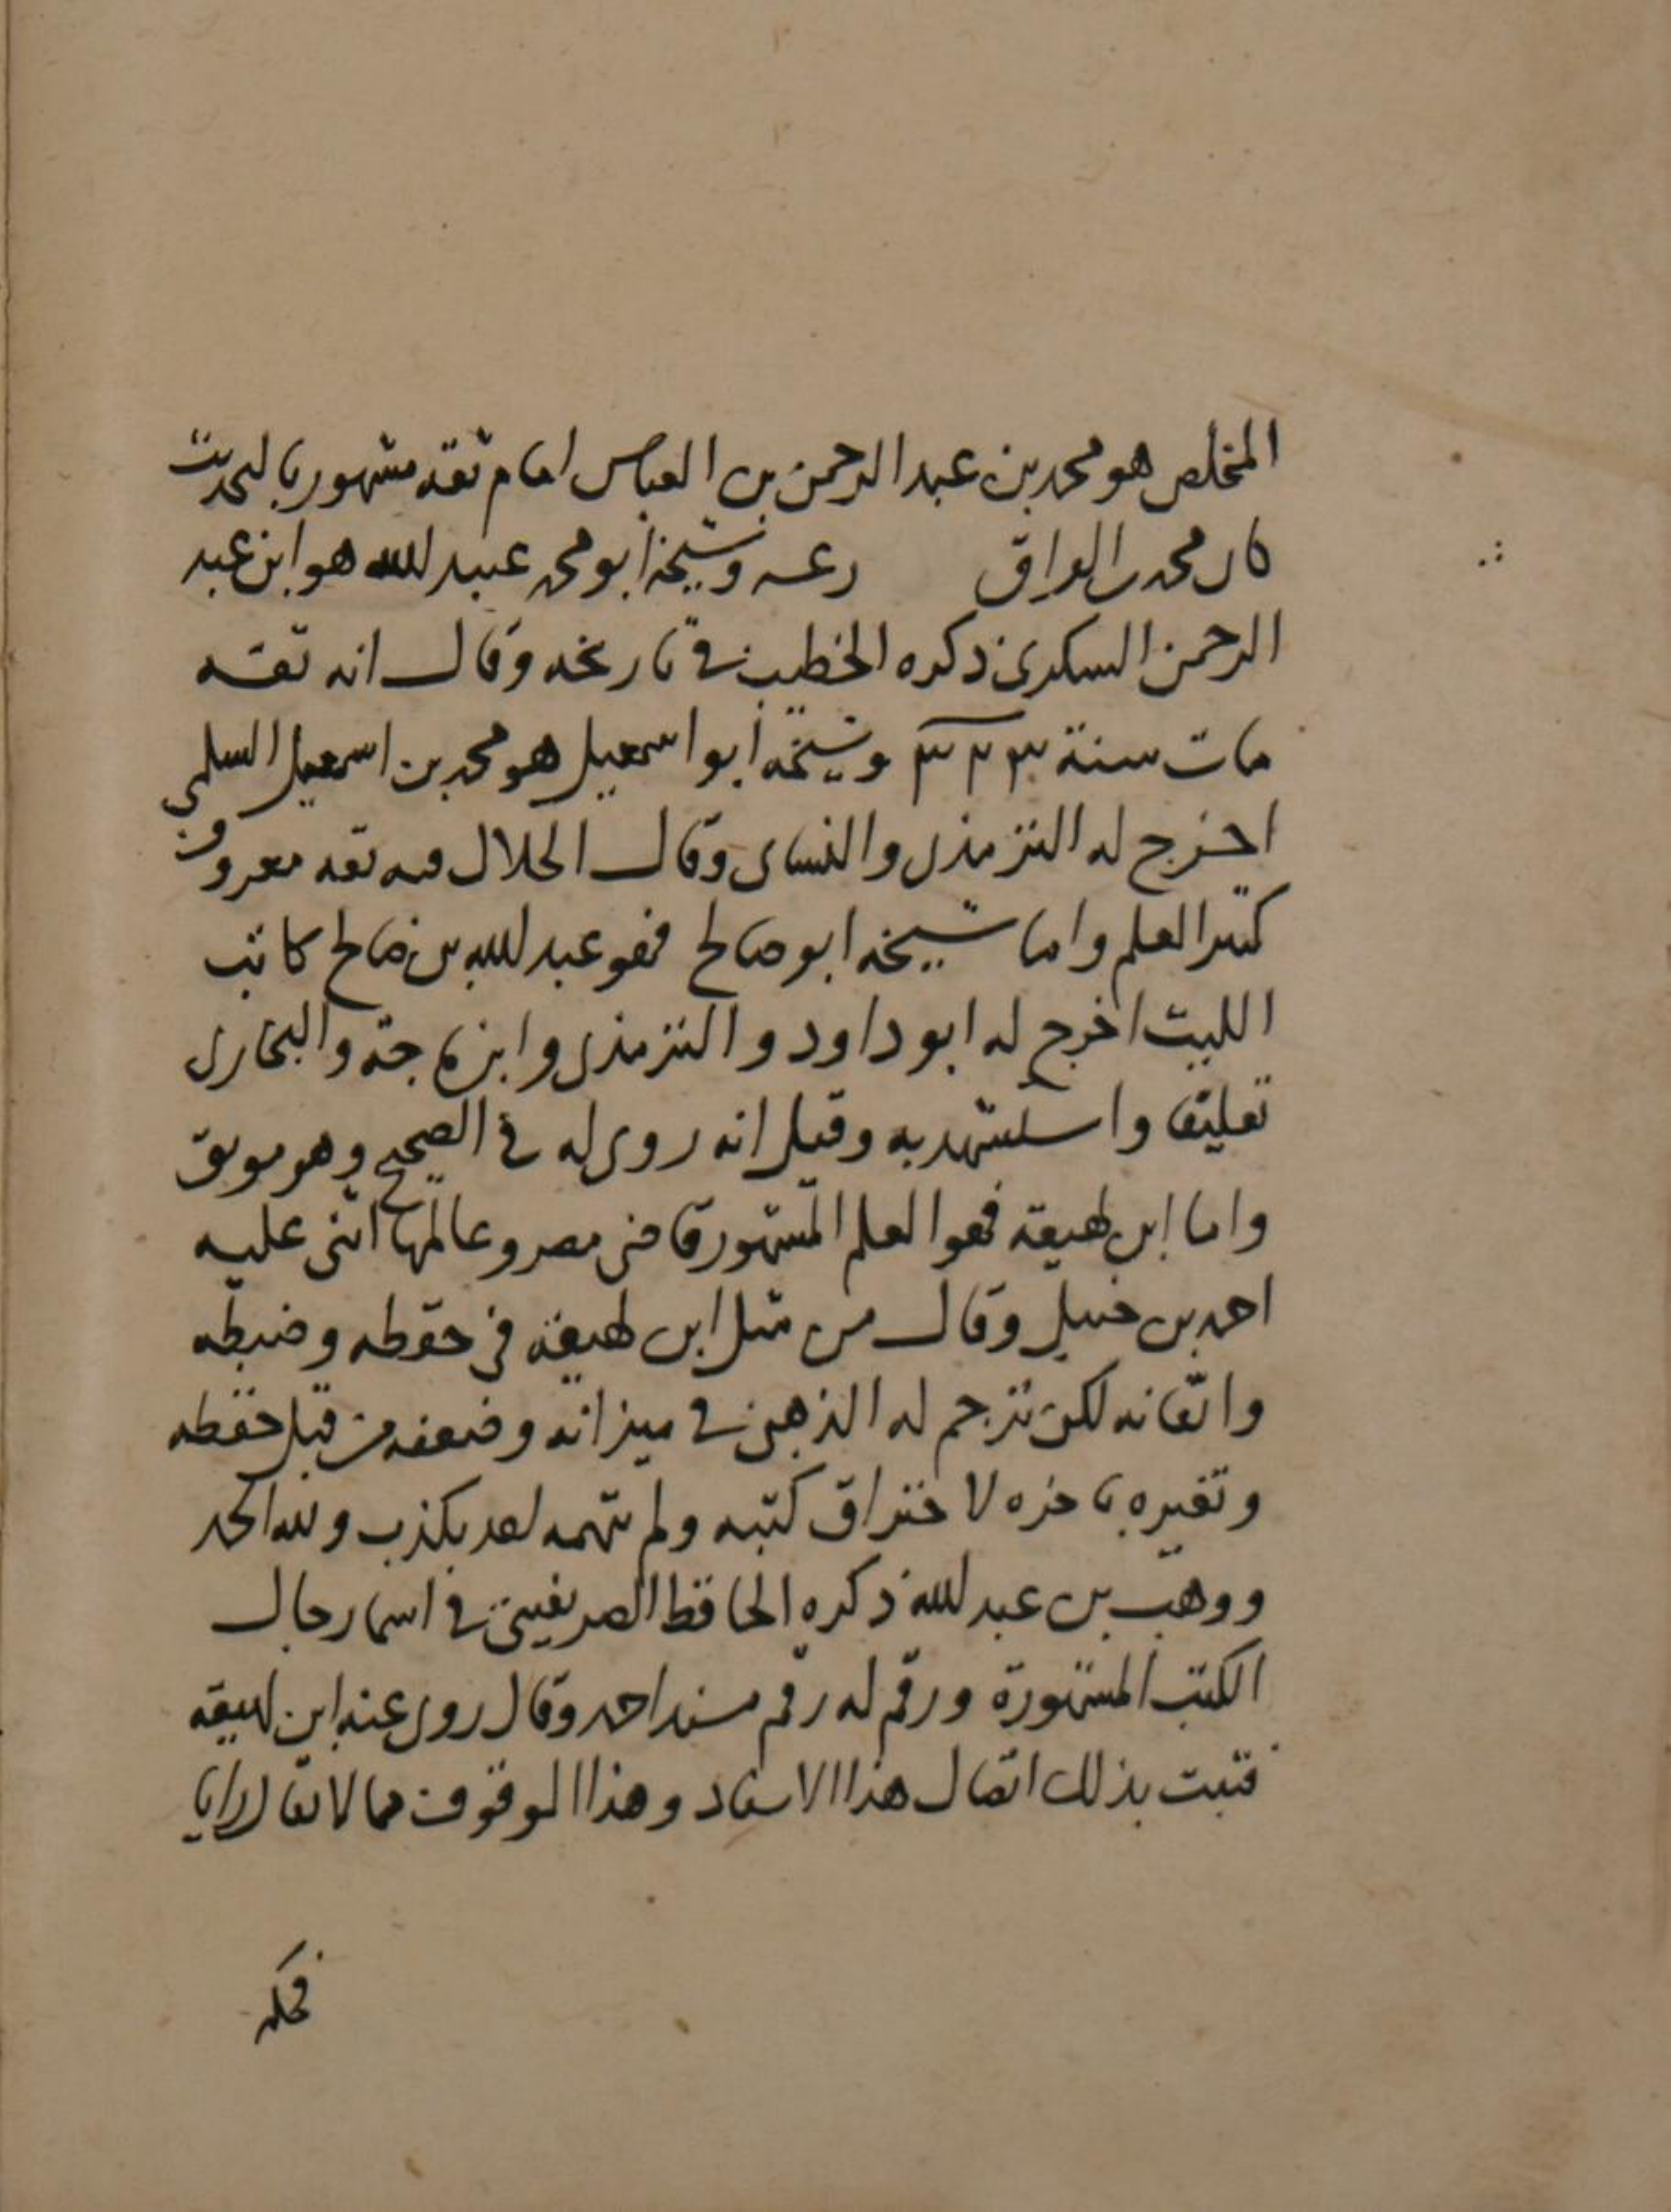 المخلص هو محمد بن عبد الرحمن بن العباس امام ثقه مشهور بالحديث
كار محدث العراق وشيخه ابو محمد عبيد الله هو ابن عبد
الرحمن السكري ذكره الخطيب في تاريخه وقال انه ثقه
مات سنة ٣٢٣ وشيخه ابو اسمعيل هو محمد بن اسمعيل السلمي
اخرج له الترمذي والنساى وقال الخلال فيه ثقه معروف
كثير العلم واما شيخه ابو صالح فهو عبد الله بن صالح كاتب
الليث اخرج له ابو داود والترمذي وابن ماجة والبخاري
تعليقا واستشهد به وقيل انه روى له في الصحيح وهو موثق
واما ابن لهيعة فهو العلم المشهور قاضي مصر وعالمها اثنى عليه
احمد بن حنبل وقال من مثل ابن لهيعة في حفظه وضبطه
واتقانه لكن ترجم له الذهبي في ميزانه وضعفه من قبل حفظه
وتغيره باخره لاحتراق كتبه ولم يتهمه احد بكذب ولله الحمد
ووهب بن عبد الله ذكره الحافظ الصريفيني في اسما رجال
الكتب المشهورة ورقم له رقم مسند احمد وقال روى عنه ابن لهيعه
فثبت بذلك اتصال هذا الاسناد وهذا الموقوف مما لا يقال رايا
فحكمه